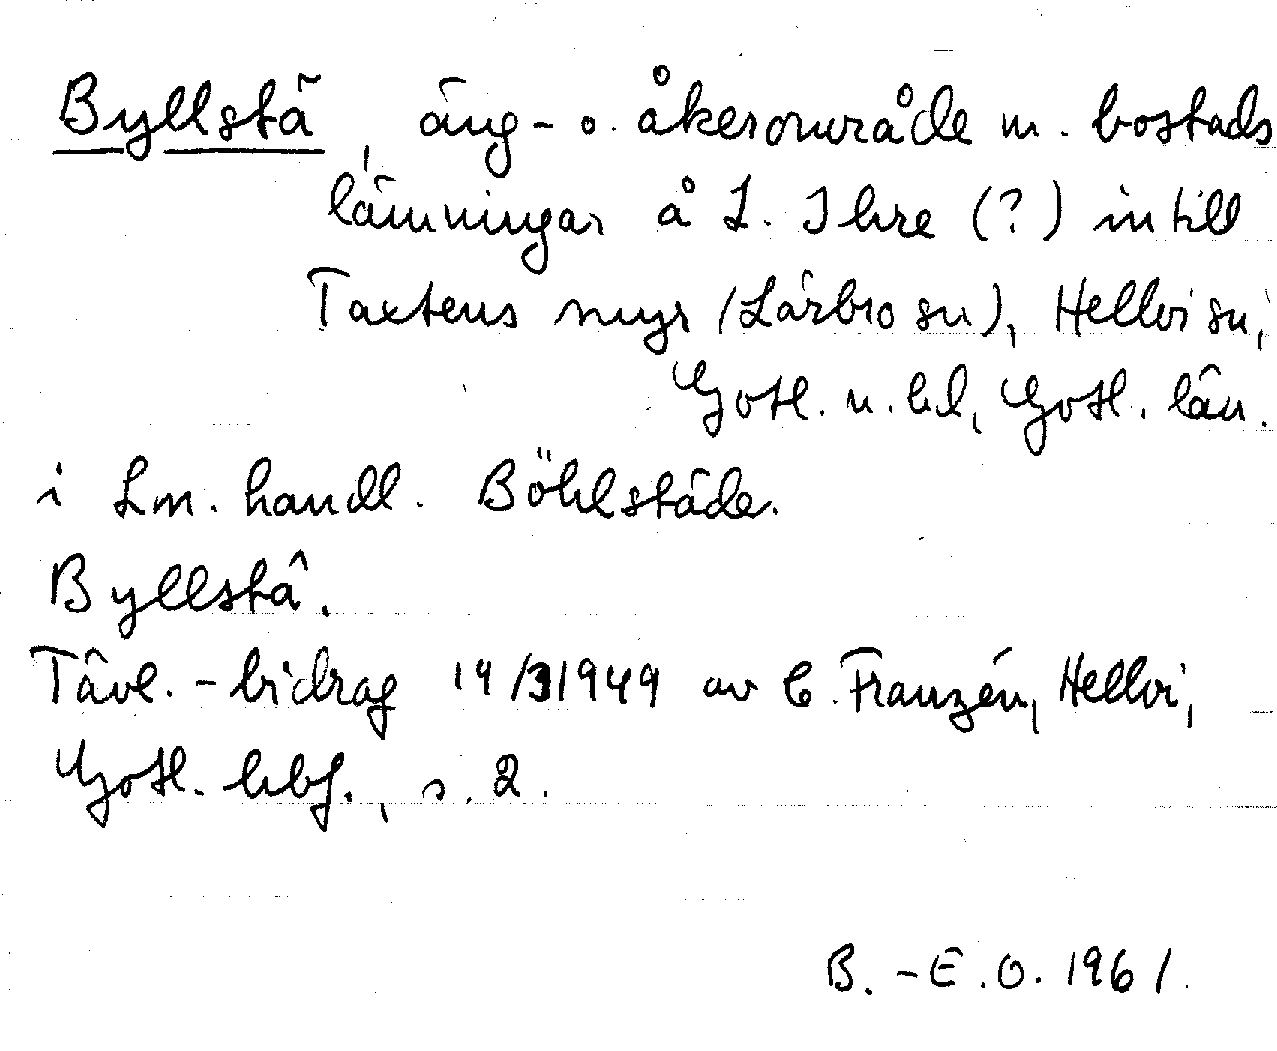 Byllstä, äng- o. åkerområde m. bostads
lämningar å L. Ihre (?) intill
Taxtens myr (Lärbro sn), Hellvi sn,
Gotl. n. hd, Gotl. län.
i Lm. handl. Böhlstäde.
Byllstä.
Tävl.-bidrag 14/3 1949 av C. Franzén, Hellvi,
Gotl. hbf., s. 2.
B.-E.O. 1961.